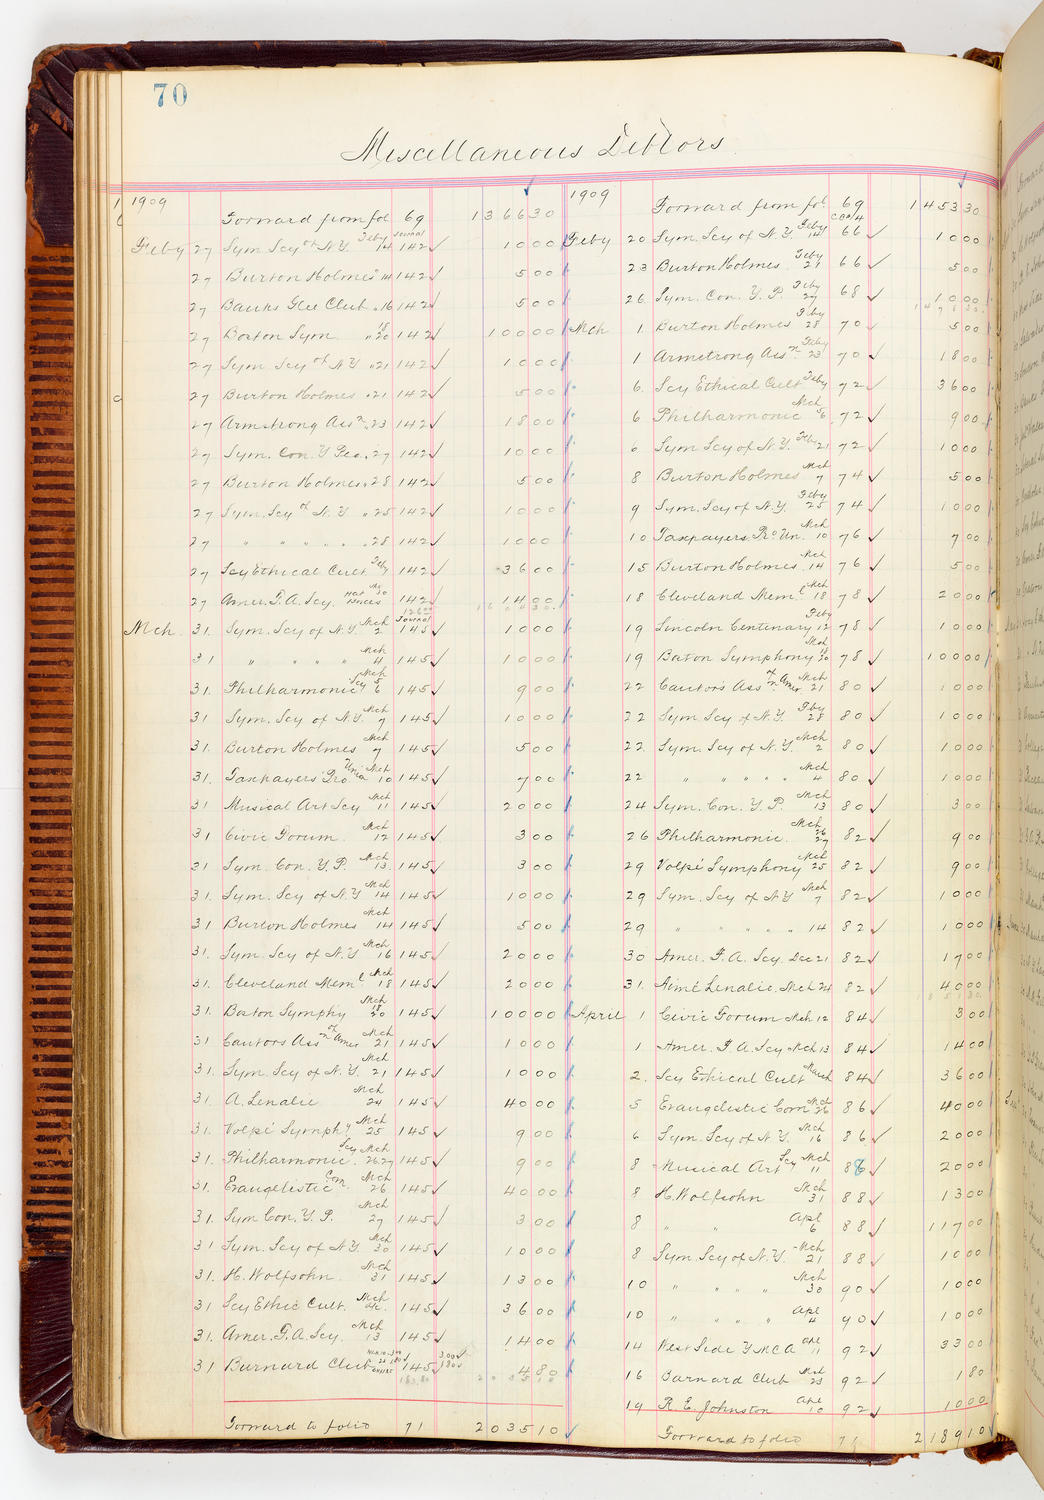 70
Miscellaneous Debtors
1909
Forward from fol 69 1366 30
Feby 27 Sym. Scy of N.Y. Feby 14 Journal 142 ✓ 10 00
27 Burton Holmes " 14 142 ✓ 5 00
27 Banks Glee Club " 16 142 ✓ 5 00
27 Boston Sym. " 18 20 142 ✓ 100 00
27 Sym. Scy of N.Y. " 21 142 ✓ 10 00
27 Burton Holmes " 21 142 ✓ 5 00
27 Armstrong Assn " 23 142 ✓ 18 00
27 Sym. Con. Y Peo. " 27 142 ✓ 10 00
27 Burton Holmes " 28 142 ✓ 5 00
27 Sym. Scy of N.Y. " 25 142 ✓ 10 00
27 " " " " " " 28 142 ✓ 10 00
27 Scy Ethical Cult Feby 142 ✓ 36 00
27 Amer. F. A. Scy. 142 ✓ 14 00
Mch. 31. Sym. Scy of N.Y. Mch 2 Journal 145 ✓ 10 00
31 " " " " Mch 4 145 ✓ 10 00
31. Philharmonic Scy Mch 5 6 145 ✓ 9 00
31 Sym. Scy of N.Y. Mch 7 145 ✓ 10 00
31. Burton Holmes Mch 7 145 ✓ 5 00
31. Taxpayers Pro Union Mch 10 145 ✓ 7 00
31 Musical Art Scy Mch 11 145 ✓ 20 00
31 Civic Forum. Mch 12 145 ✓ 3 00
31 Sym. Con. Y. P. Mch 13. 145 ✓ 3 00
31. Sym. Scy of N.Y Mch 14 145 ✓ 10 00
31 Burton Holmes Mch 14 145 ✓ 5 00
31. Sym. Scy of N.Y Mch 16 145 ✓ 20 00
31. Cleveland Meml Mch 18 145 ✓ 20 00
31. Boston Symphy Mch 18 20 145 ✓ 100 00
31. Cantors Assn of Amer Mch 21 145 ✓ 10 00
31. Sym. Scy of N.Y. Mch 21 145 ✓ 10 00
31. A. Lenalie Mch 24 145 ✓ 40 00
31. Volpé Symphy Mch 25 145 ✓ 9 00
31. Philharmonic Scy Mch 26.27 145 ✓ 9 00
31. Evangelistic Com. Mch 26 145 ✓ 40 00
31. Sym Con. Y. P. Mch 27 145 ✓ 3 00
31 Sym. Scy of N.Y. Mch 30 145 ✓ 10 00
31. H. Wolfsohn. Mch 31 145 ✓ 13 00
31 Scy Ethic Cult. Mch 145 ✓ 36 00
31. Amer. F. A. Scy. Mch 13 145 ✓ 14 00
31 Barnard Club 145 ✓ 3.00 ✓ 1 80 ✓ 4 80
Forward to folio 71 2035 10 ✓
1909
Forward from fol 69 1453 30
Feby 20 Sym. Scy of N.Y. Feby 14 66 ✓ 10 00
23 Burton Holmes. Feby 21 66 ✓ 5 00
26 Sym. Con. Y. P. Feby 27 68 ✓ 10 00
Mch. 1. Burton Holmes Feby 28 70 ✓ 5 00
1 Armstrong Assn Feby 23 70 ✓ 18 00
6. Scy Ethical Cult Feby 72 ✓ 36 00
6 Philharmonic Mch 5 6 72 ✓ 9 00
6 Sym. Scy of N.Y. Feby 21 72 ✓ 10 00
8 Burton Holmes Mch 7 74 ✓ 5 00
9 Sym. Scy of N.Y. Feby 25 74 ✓ 10 00
10 Taxpayers Pro Un. Mch 10 76 ✓ 7 00
15 Burton Holmes. Mch 14 76 ✓ 5 00
18 Cleveland Meml Mch 18 78 ✓ 20 00
19 Lincoln Centenary Feby 12 78 ✓ 10 00
19 Boston Symphony Mch 18 20 78 ✓ 100 00
22 Cantors Assn of Amer Mch 21 80 ✓ 10 00
22 Sym Scy of N.Y. Feby 28 80 ✓ 10 00
22. Sym. Scy of N.Y. Mch 2 80 ✓ 10 00
22 " " " " " Mch 4 80 ✓ 10 00
24 Sym. Con. Y. P. Mch 13 80 ✓ 3 00
26 Philharmonic. Mch 26 27 82 ✓ 9 00
29 Volpé Symphony Mch 25 82 ✓ 9 00
29 Sym. Scy of N.Y Mch 7 82 ✓ 10 00
29 " " " " " 14 82 ✓ 10 00
30 Amer. F. A. Scy. Dec 21 82 ✓ 17 00
31. Aimé Lenalie. Mch 24 82 ✓ 40 00
April 1 Civic Forum Mch 12 84 ✓ 3 00
1 Amer. F. A. Scy Mch 13 84 ✓ 14 00
2. Scy Ethical Cult March 84 ✓ 36 00
5 Evangelistic Com Mch 26 86 ✓ 40 00
6 Sym. Scy of N.Y. Mch 16 86 ✓ 20 00
8 Musical Art Scy Mch 11 88 ✓ 20 00
8 H. Wolfsohn Mch 31 88 ✓ 13 00
8 " " Apl 6 88 ✓ 117 00
8 Sym. Scy of N.Y. Mch 21 88 ✓ 10 00
10 " " " " Mch 30 90 ✓ 10 00
10 " " " " Apl 4 90 ✓ 10 00
14 West Side Y M C A Apl 11 92 ✓ 33 00
16 Barnard Club Mch 23 92 ✓ 1 80
19 R. E. Johnston Apl 10 92 ✓ 10 00
Forward to folio 71 2189 10